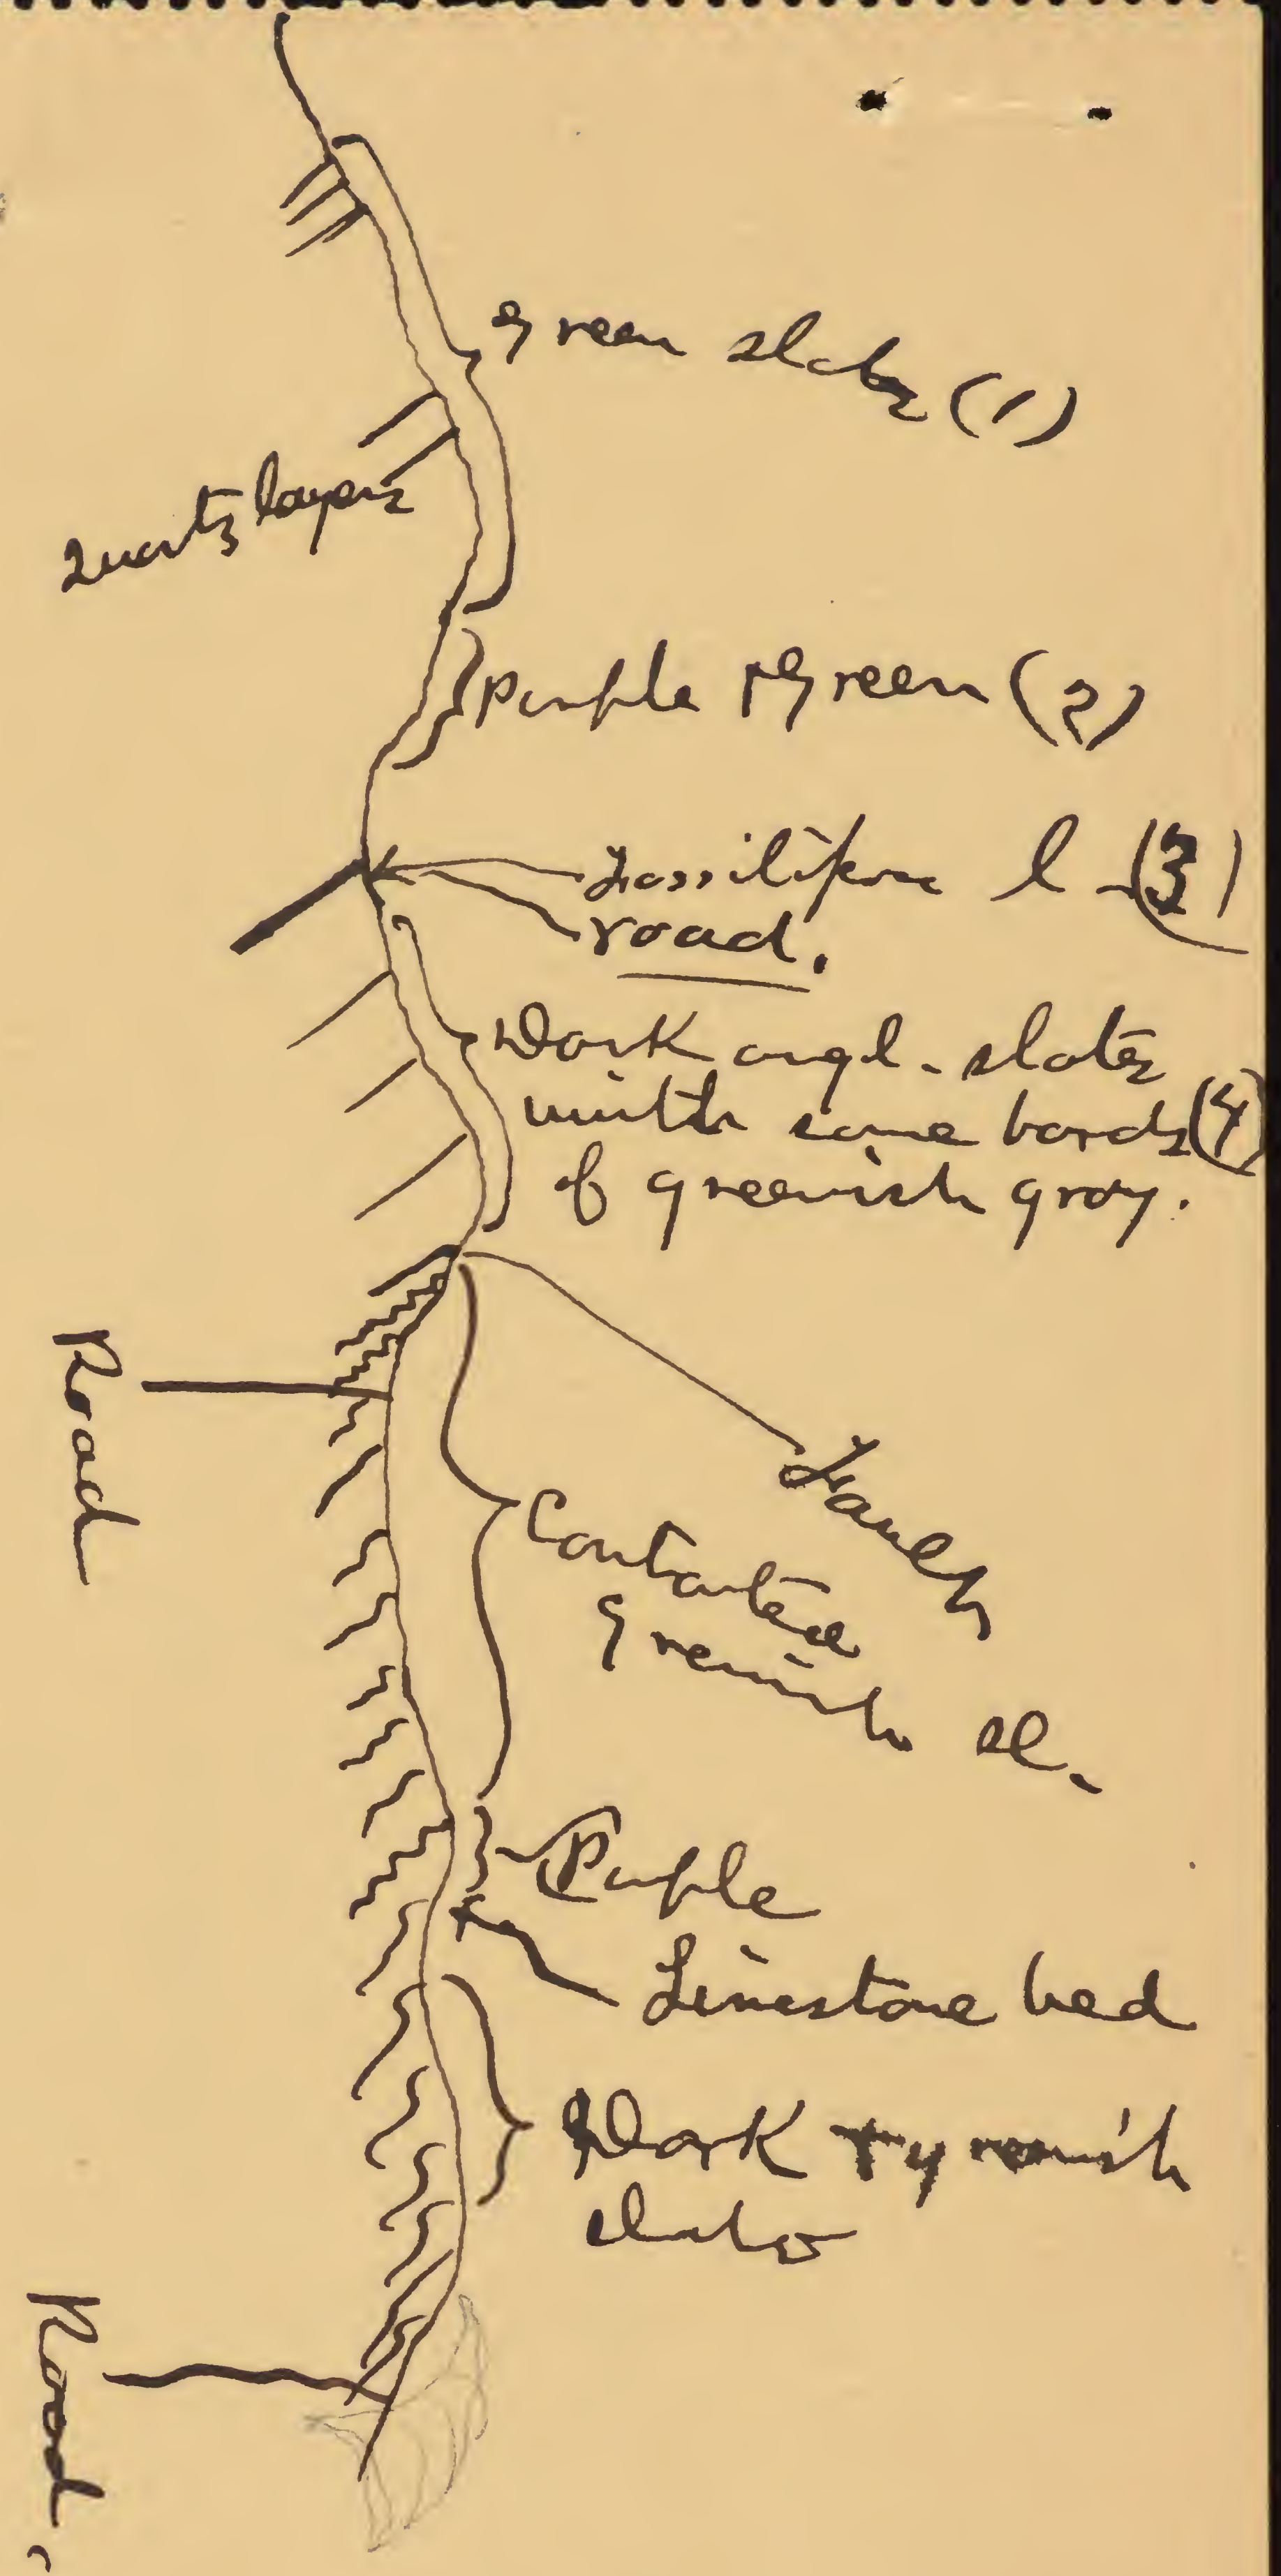 Green slates (1)
Quartz layers
Purple + Green (2)
Fossilifere l - (3)
road.
Dark argl. slates
with some bands (4)
of greenish gray.
Fault
Road
Contorted
greenish sl.
Purple
Limestone bed
Dark + greenish
slates
Road.